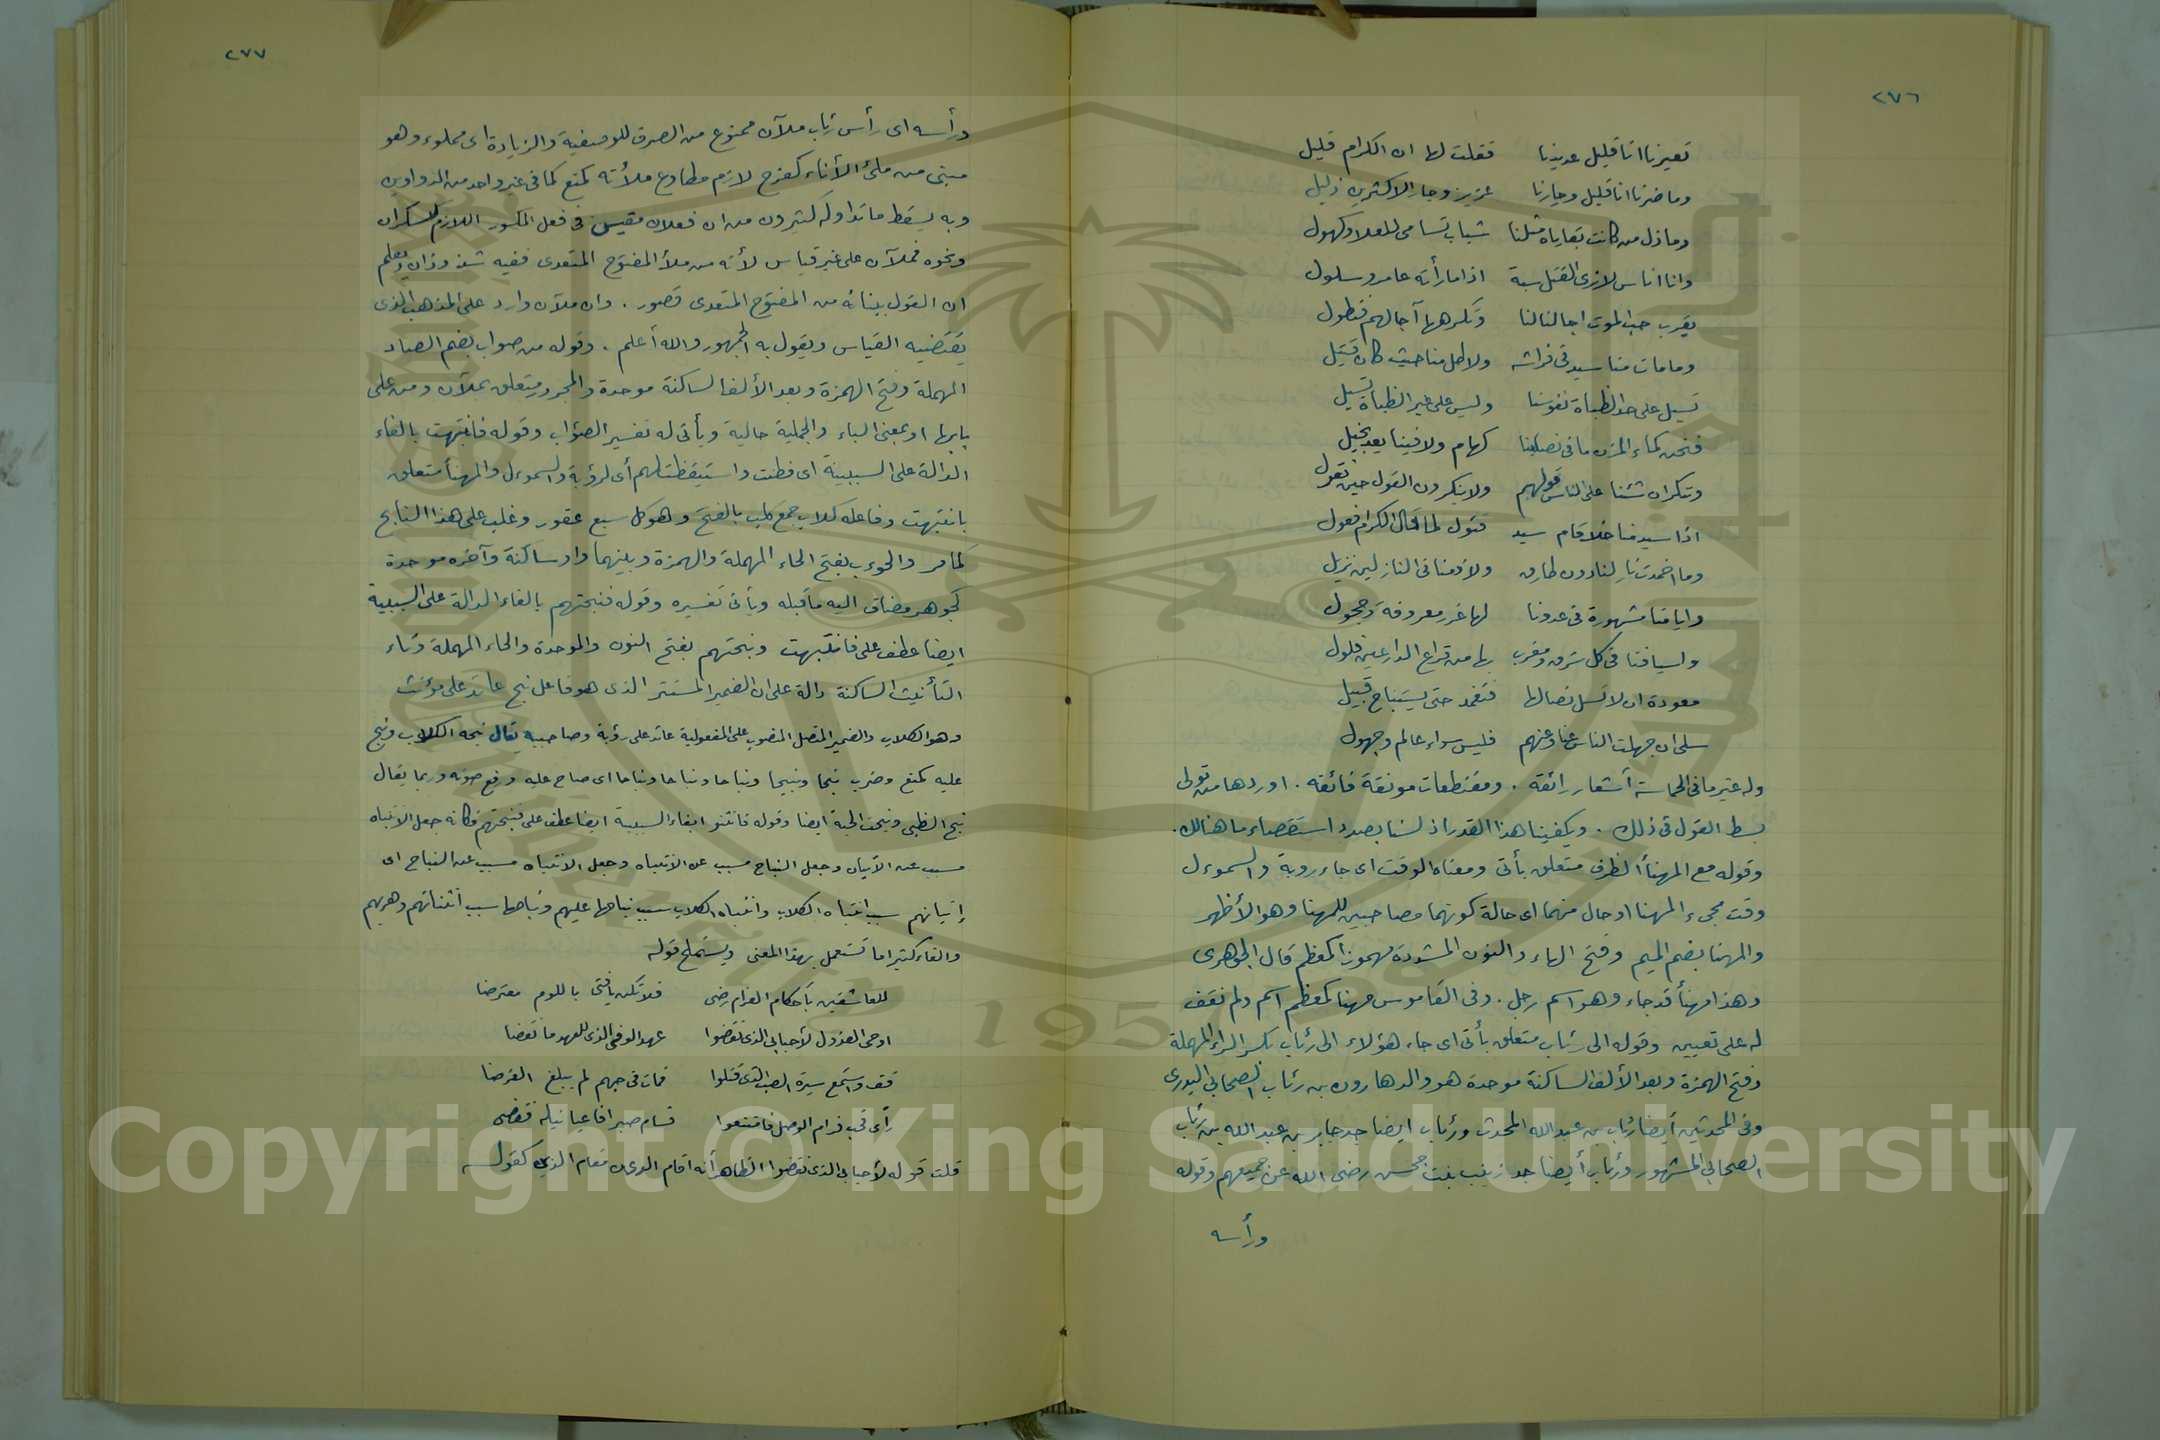 ٢٧٦
تعيرنا انا قليل عديدنا فقلت لها ان الكرام قليل
وما ضرنا انا قليل وجارنا عزيز وجار الاكثرين ذليل
وما ذل من كانت بقاياه مثلنا شباب تسامى للعلا وكهول
وانا اناس لا نرى القتل سبة اذا ما رأته عامر وسلول
يقرب حب الموت اجالنا لنا وتكرهها آجالهم فتطول
وما مات منا سيد فى فراشه ولا طل منا حيث كان قتيل
تسيل على حد الظباة نفوسنا وليس على غير الظباة تسيل
فنحن كماء المزن ما فى نصابنا كهام ولا فينا يعد بخيل
وننكر ان شئنا على الناس قولهم ولا ينكرون القول حين نقول
اذا سيد منا خلا قام سيد قئول لما قال الكرام فعول
وما اخمدت نار لنا دون طارق ولا ذمنا فى النازلين نزيل
وايامنا مشهورة فى عدونا لها غرر معروفة وحجول
واسيافنا فى كل شرق ومغرب بها من قراع الدارعين فلول
معودة ان لا تسل نصالها فتغمد حتى يستباح قبيل
سلى ان جهلت الناس عنا وعنهم فليس سواء عالم وجهول
وله غير ما فى الحماسة أشعار رائقة . ومقتطعات مونقة فائقه . اوردها من تولى
بسط القول فى ذلك . ويكفينا هذا القدر اذ لسنا بصدد استقصاء ما هنالك .
وقوله مع المهنأ الظرف متعلق بأتى ومعناه الوقت اى جاء روبة والسموءل
وقت مجىء المهنا او حال منهما اى حالة كونهما مصاحبين للمهنا وهو الأظهر
والمهنا بضم الميم وفتح الهاء والنون المشددة مهموزا كمعظم قال الجوهرى
وهذا مهنأ قد جاء وهو اسم رجل . وفى القاموس مهنا كمعظم اسم ولم نقف
له على تعيين وقوله الى رئاب متعلق بأتى اى جاء هؤلاء الى رئاب بكسر الراء المهملة
وفتح الهمزة وبعد الألف الساكنة موحدة هو والد هارون بن رئاب الصحابى البدرى
وفى المحدثين أيضا رئاب بن عبد الله المحدث ورئاب ايضا جد جابر بن عبد الله بن رئاب
الصحابى المشهور ورئاب أيضا جد زينب بنت جحش رضى الله عن جميعهم وقوله
ورأسه
٢٧٧
ورأسه اى رأس رئاب ملآن ممنوع من الصرف للوصفية والزيادة اى مملوء وهو
مبنى من ملئ الأناء كفرح لازم مطاوع ملأته كمنع كما فى غير واحد من الدواوين
وبه يسقط ما تداوله كثيرون من ان فعلان مقيس فى فعل المكسور اللازم كسكران
ونحوه فملآن على غير قياس لأنه من ملأ المفتوح المتعدى ففيه شذوذان ويعلم
ان القول ببنائه من المفتوح المتعدى قصور . وان ملآن وارد على المذهب الذى
يقتضيه القياس ويقول به الجمهور والله أعلم . وقوله من صواب بضم الصاد
المهملة وفتح الهمزة وبعد الألف الساكنة موحدة والمجرور متعلق بملآن ومن على
بابها او بمعنى الباء والجملية حالية ويأتى له تفسير الصؤاب وقوله فانتبهت بالفاء
الدالة على السببية اى فطنت واستيقظت لهم أى لرؤبة والسموءل والمهنأ متعلق
بانتبهت وفاعله كلاب جمع كلب بالفتح وهو كل سبع عقور وغلب على هذا النابح
كما مر والحوءب بفتح الحاء المهملة والهمزة وبينهما واو ساكنة وآخره موحدة
كجوهر مضاف اليه ما قبله ويأتى تفسيره وقوله فنبحتهم بالفاء الدالة على السببية
ايضا عطف على فانتبهت ونبحتهم بفتح النون والموحدة والحاء المهملة وتاء
التأنيث الساكنة دالة على ان الضمير المستتر الذى هو فاعل نبح عائد على مؤنث
وهو الكلاب والضمير المتصل المنصوب على المفعولية عائد على رؤبة وصاحبيه يقال نبحه الكلاب ونبح
عليه كمنع وضرب نبحا ونبيحا ونباحا ونباحا ونباحا اى صاح عليه ورفع صوته وربما يقال
نبح الظبى ونبحت الحية ايضا وقوله فانثنو ابفاء السببية ايضا عطف على فنبحتهم فكانه جعل الانتباه
مسبب عن الأتيان وجعل النباح مسبب عن الانتباه وجعل الانتباه مسبب عن النباح اى
إتيانهم سبب انتباه الكلاب وانتباه الكلاب سبب نباحها عليهم ونباحها سبب انثنائهم وهربهم
والفاء كثيرا ما تستعمل بهذا المعنى ويستملح قوله
للعاشقين بأحكام الغرام رضى فلا تكن يا فتى باللوم معترضا
روحى الفدا لأحبابى الذى نقضوا عهد الوفى الذى للعهد ما نقضا
قف واستمع سيرة الصب الذى قتلوا فمات فى حبهم لم يبلغ الغرضا
رأى فحب فرام الوصل فامتنعوا فسام صبرا فاعيا نيله فقضى
قلت قوله لأحبابى الذى نقضوا الظاهر أنه اقام الذى مقام الذين كقوله
Copyright © King Saud University
1957